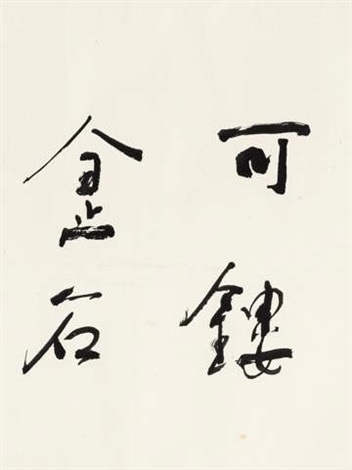 可鏤
金石